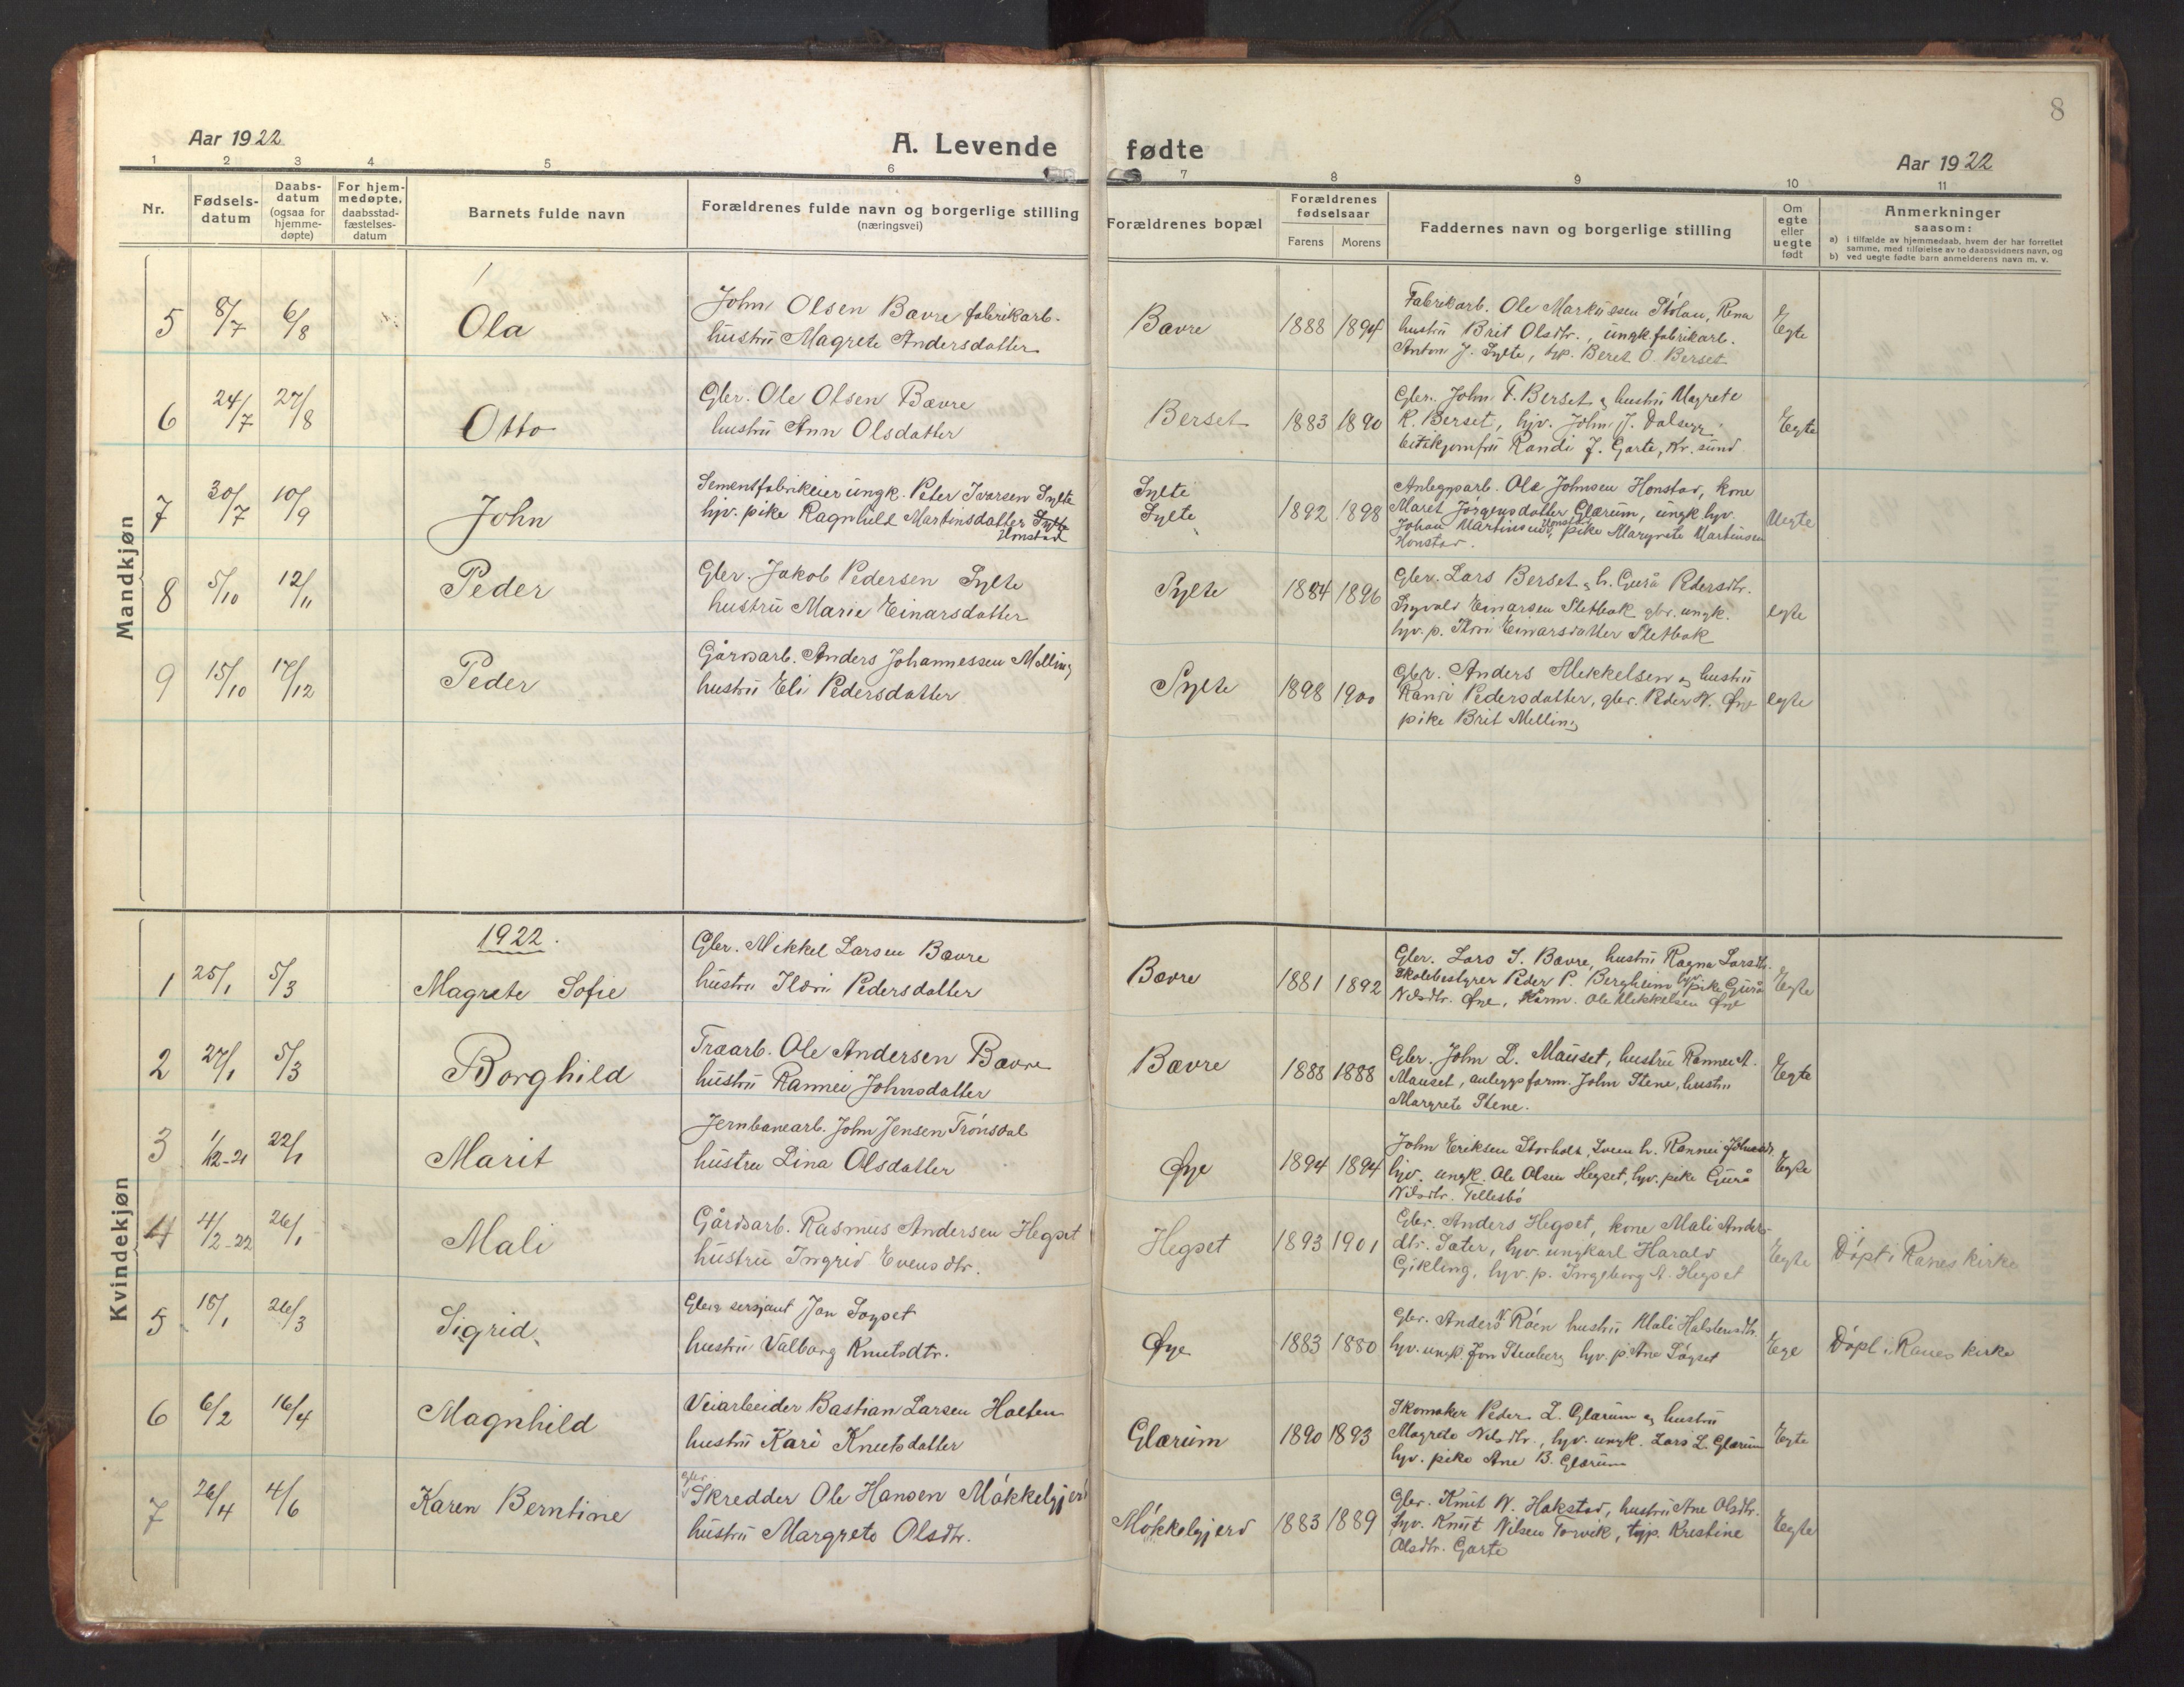 8
Aar 1922
A. Levende fødte
Aar 1922
1 2 3 4 5 6 7 8 9 10 11
Nr.
Fødsels-datum
Daabs-datum (ogsaa for hjemme-døpte)
For hjem-medøpte, daabsstad-fæstelses-datum
Barnets fulde navn
Forældrenes fulde navn og borgerlige stilling
(næringsvei)
Forældrenes bopæl
Forældrenes fødselsaar
Farens Morens
Faddernes navn og borgerlige stilling
Om egte eller uegte født
Anmerkninger
saasom:
a) i tilfælde av hjemmedaab, hvem der har forrettet samme, med tilføielse av to daabsvidners navn, og
b) ved uegte fødte barn anmelderens navn m. v.
Mandkjøn
5 8/7 6/8 Ola
John Olsen Bævre fabrikarb.
hustru Magrete Andersdatter
Bævre 1888 1894
Fabrikarb. Ole Markussen Stölan, Rena
hustru Brit Olsdtr., ungk. fabrikarb.
Anton J. Sylte, tjp. Beret O. Berset
Egte
6 24/7 27/8 Otto
Gbr. Ole Olsen Bævre
hustru Ann Olsdatter
Berset 1883 1890
Gbr. John F. Berset og hustru Magrete
R. Berset, hjv. John J. Dalsegg
Randi J. Garte, Kr.sund
Egte
7 30/7 10/9 John
Sementfabrikeier ungk. Peter Ivarsen Sylte
hjv. pike Ragnhild Martinsdatter Sylte
Honstad
Sylte
Sylte
1892 1898
Anlegsarb. Ola Johnsen Honstad, kone
Maret Jörgensdatter Glærum, ungk. hjv.
Johan Martinsen Honstad, pike Margrete Martinsen
Honstad.
Uegte
8 5/10 12/11 Peder
Gbr. Jakob Pedersen Sylte
hustru Marie Einarsdatter
Sylte 1884 1896
Gbr. Lars Berset og h. Gurå Pedersdtr.
Einarsen Sletbak gbr. ungk.
hjv. p. Einarsdatter Sletbak
egte
9 15/10 17/12 Peder
Gårdsarb. Anders Johannessen Melling
hustru Eli Pedersdatter
Sylte 1898 1900
Gbr. Anders Mekkelsen og hustru
Randi Pedersdatter, gbr. Peder N. Øye
pike Brit Melling
egte
Kvindekjøn
1922.
1 25/1 5/3 Magrete Sofie
Gbr. Mikkel Larsen Bævre
hustru Pedersdatter
Bævre 1881 1892
Gbr. Lars S. Bævre, hustru Ragna Larsdtr.
Skolebestyrer Peder P. Bergheim hjv. pike Gurå
Nilsdtr. Øye, Ole Mekkelsen Øye
Egte
2 27/1 5/3 Borghild
Træarb. Ole Andersen Bævre
hustru Rannei Johnsdatter
Bævre 1888 1888
Gbr. John L. Mauset, hustru Rannei A.
Mauset, anleggsform. John Stene, hustru
Margrete Stene.
Egte
3 1/12-21 22/1 Marit
Jernbanearb. John Jensen Trönsdal
hustru Lina Olsdatter
Øye 1894 1894
John Eriksen Storholt, h. Rannei Johnsdtr.
hjv. ungk. Ole Olsen Hegset, hjv. pike Gurå
Nilsdtr. Tellesbö
Egte
4 4/2-22 26/1 Mali
Gårdsarb. Rasmus Andersen Hegset
hustru Ingrid Evensdtr.
Hegset 1893 1901
Gbr. Anders Hegset, kone Mali Anders-
dtr. Sæter, hjv. ungkarl Harald
Gikling, hjv. p. Ingeborg A. Hegset
Egte
Döpt i Ranes kirke
5 18/1 26/3 Sigrid
Gbr. sersjant Jon Sogset
hustru Valborg Knutsdtr.
Øye 1883 1880
Gbr. Anders N. Röen hustru Mali Halstensdtr.
hjv. ungk. Jon Stenberg hjv. p. Ane Sögset
Ege
Döpt i Ranes kirke
6 6/2 16/4 Magnhild
Veiarbeider Bastian Larsen Holten
hustru Kari Knutsdatter
Glærum 1890 1893
Skomaker Peder L. Glærum og hustru
Magrete Nilsdtr., hjv. ungk. Lars L. Glærum
hjv. pike Ane B. Glærum
Egte
7 26/4 4/6 Karen Berntine
gbr.
Skredder Ole Hansen Mökkelgjerd
hustru Margrete Olsdtr.
Mökkelgjerd 1883 1889
Gbr. Knut N. Hakstad, hustru Ane Olsdtr.
hjv. Knut Nilsen Torvik, tjp. Kristine
Olsdtr. Garte
Egte